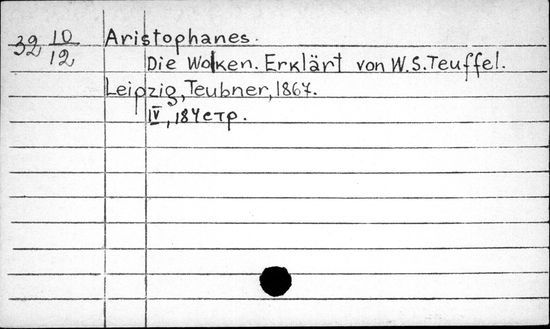 32 10/12 Aristophanes.
Die Wolken. Erklärt von W.S.Teuffel.
Leipzig, Teubner, 1867.
IV, 184 стр.